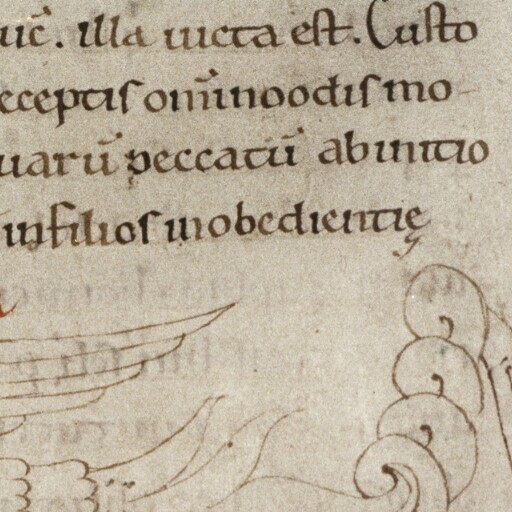 uc̄. illa iucta est. Custo
eceptis om̄inoodis mo
uarū peccatū ab initio
in filios inobedientię